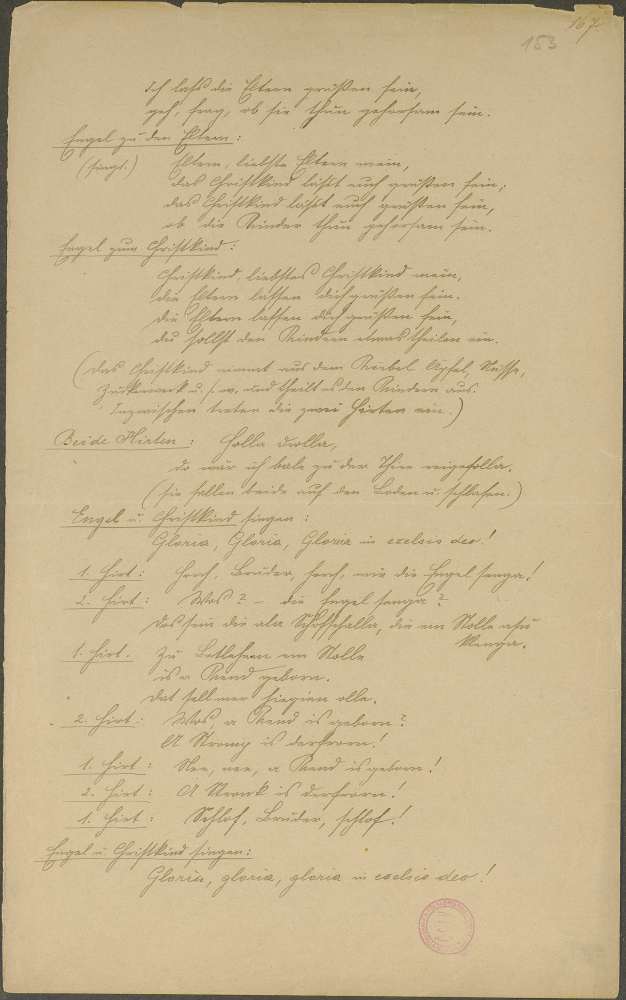 167.
153
Ich lass die Eltern grüßen fein,
geh, frag, ob sie thun gehorsam sein.
Engel zu den Eltern:
(singt.) Eltern, liebste Eltern mein,
das Christkind lässt euch grüßen fein;
das Christkind lässt euch grüßen fein,
ob die Kinder thun gehorsam sein.
Engel zum Christkind:
Christkind, liebstes Christkind mein,
die Eltern lassen dich grüßen fein.
Die Eltern lassen dich grüßen fein,
du sollst den Kindern etwas theilen ein.
(Das Christkind nimmt aus dem Kübel Äpfel, Nüsse,
Zuckerwerk u. s. w. und theilt es den Kindern aus.
Inzwischen treten die zwei Hirten ein.)
Beide Hirten: Holla drolla,
do wär ich bale zu der Thier reigefolla.
(Sie fallen beide auf den Boden u. schlafen.)
Engel u. Christkind singen:
Gloria, Gloria, Gloria in excelsis deo!
1. Hirt: Horch, Bruder, horch, wie die Engel senga!
2. Hirt: Wos? – die Engel senga?
Das sein die ala Schofschalla, die em Stolle
1. Hirt. Zu Bethlehem em Stolle
is a Kend geborn.
Dat sell mer hiegien olle.
2. Hirt: Wos, a Kend is geborn?
A Stromp is derfrorn!
1. Hirt: Nee, nee, a Kend is geborn!
2. Hirt: A is derfrorn!
1. Hirt: Schlof, Bruder, schlof!
Engel u. Christkind singen:
Gloria, gloria, gloria in excelsis deo!